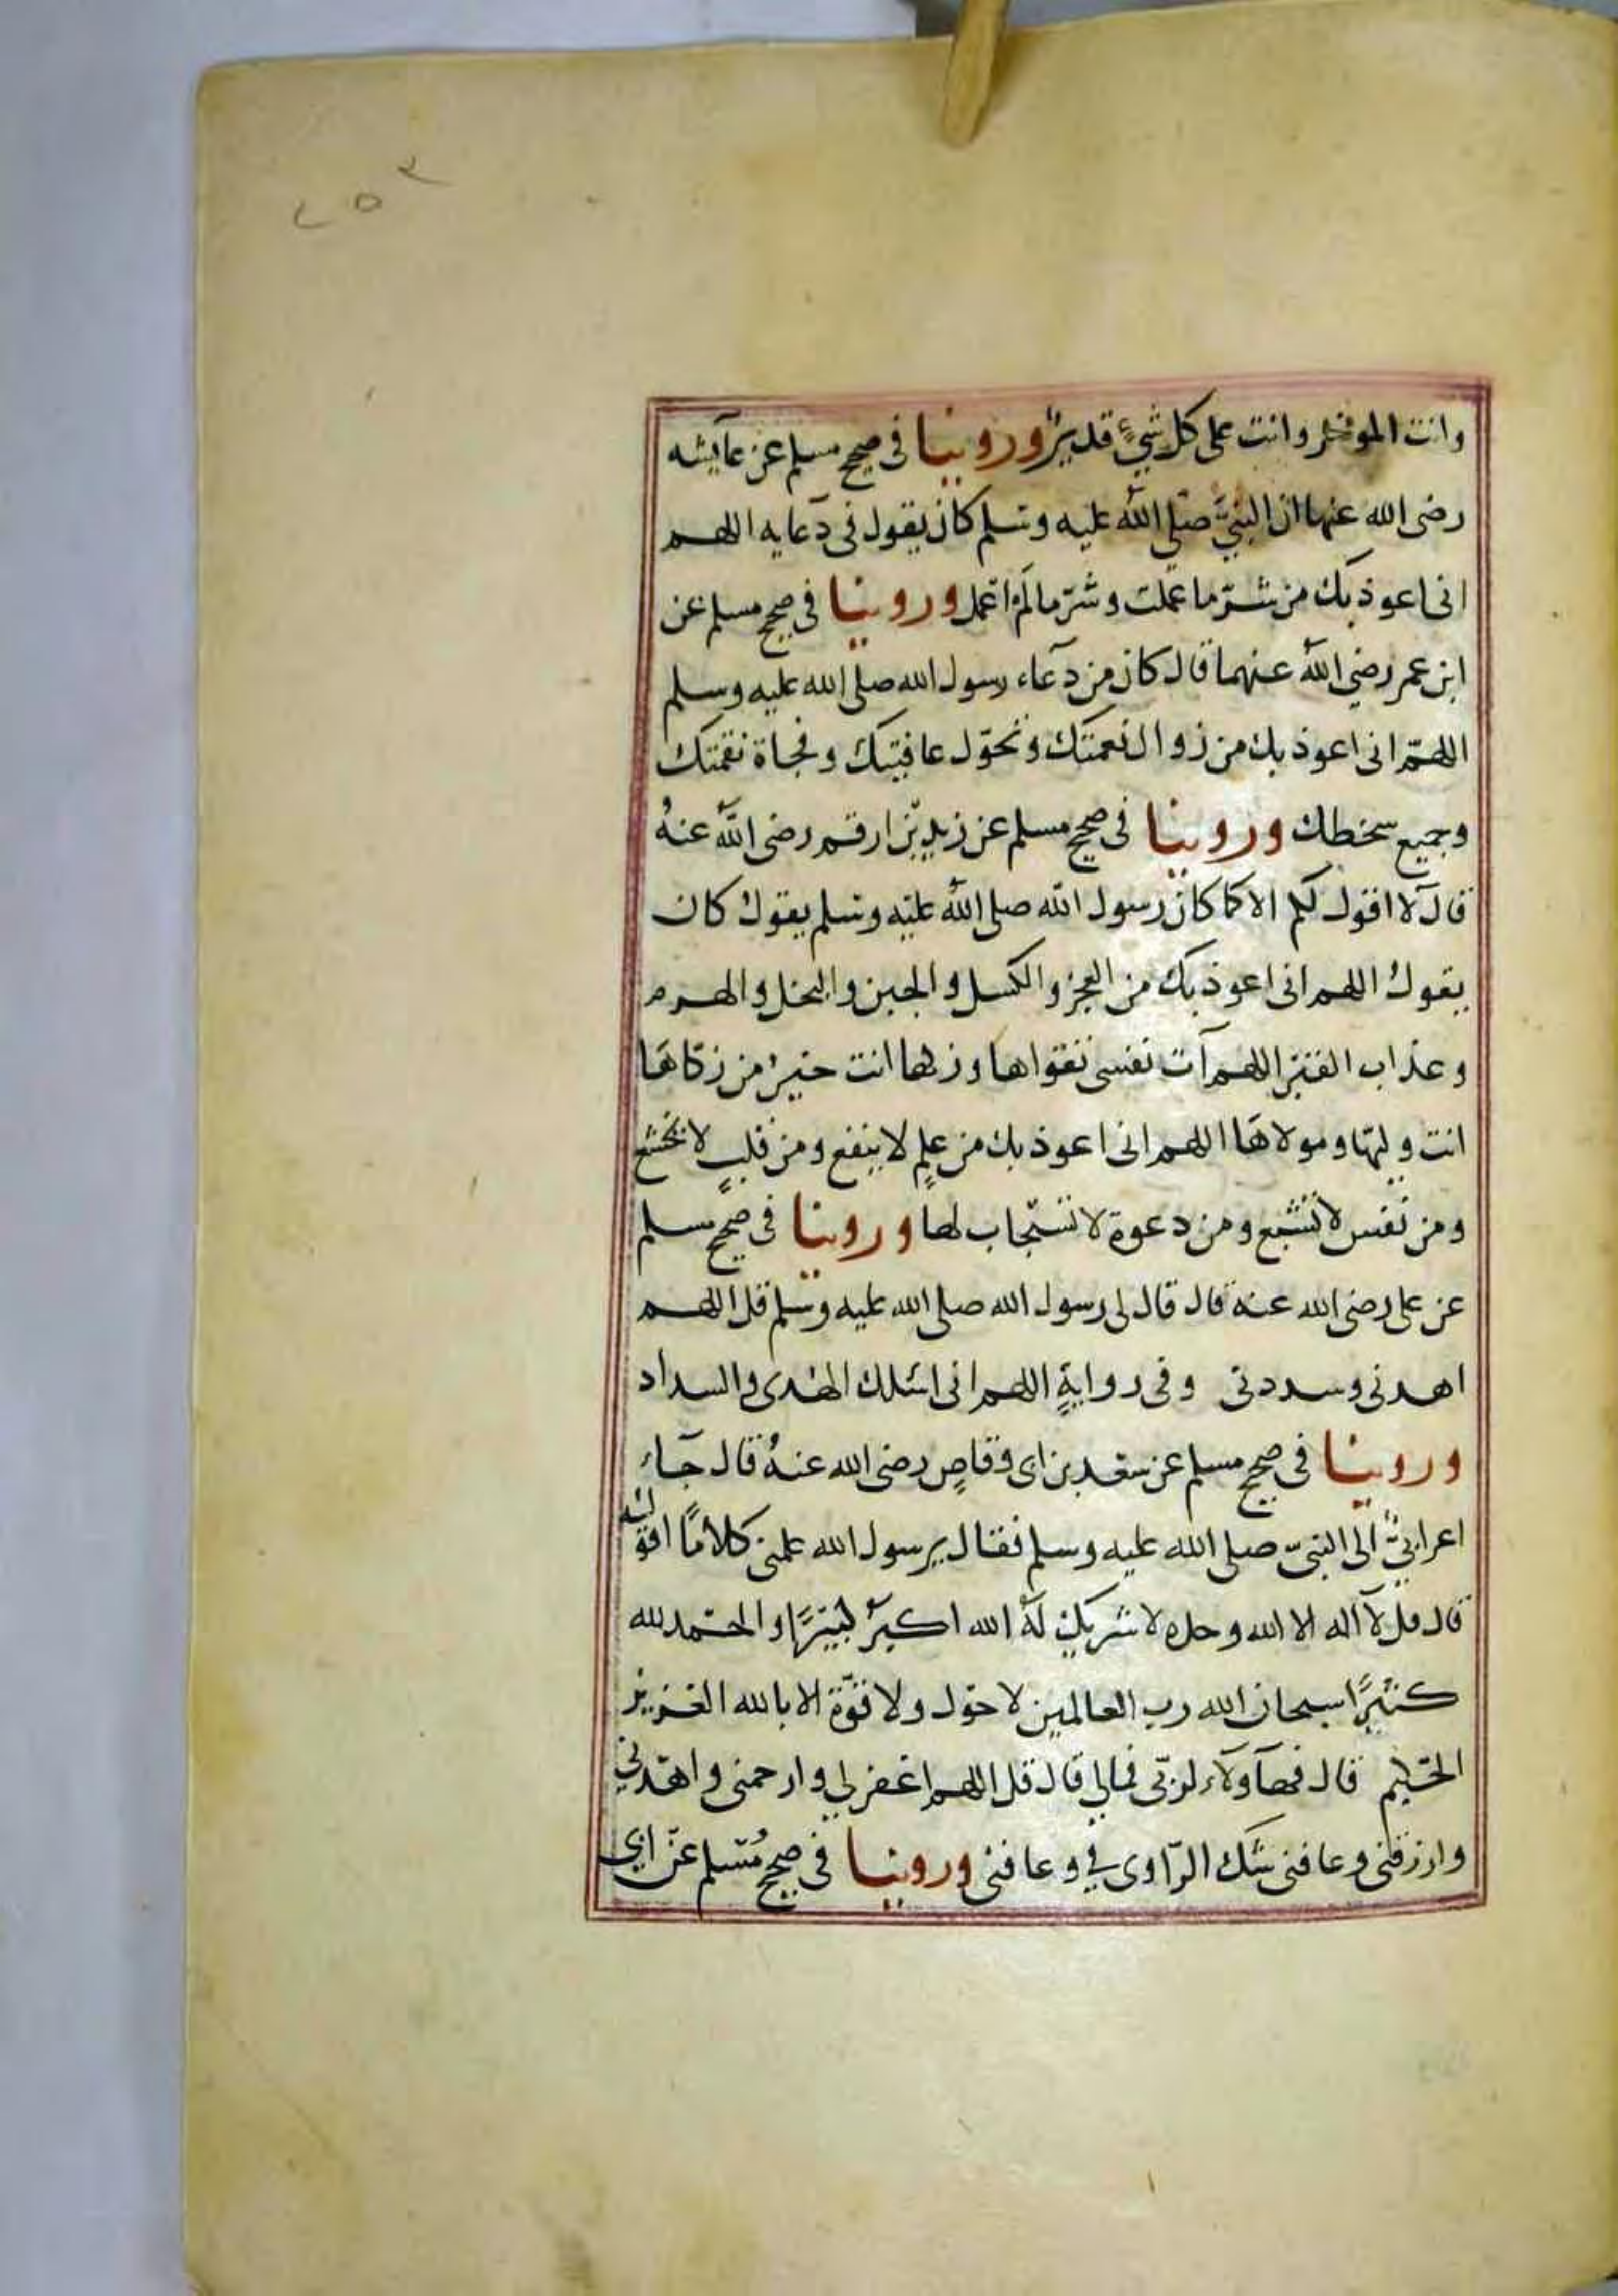 ٢٥٣
وانت الموخر وانت على كل شيء قدير وروينا في صحيح مسلم عن عايشه
رضى الله عنها ان النبيّ صلى الله عليه وسلم كان يقول في دعايه اللهم
انى اعوذ بك من شرّ ما عملت وشرّ ما لم اعمل وروينا في صحيح مسلم عن
ابن عمر رضي الله عنهما قال كان من دعاء رسول الله صلى الله عليه وسلم
اللهمّ انى اعوذ بك من زوال نعمتك وتحوّل عافيتك وفجاة نقمتك
وجميع سخطك وروينا في صحيح مسلم عن زيد بن ارقم رضى الله عنهُ
قال لا اقول لكم الا كما كان رسول الله صلى الله عليه وسلم يقول كان
يقول اللهم انى اعوذ بك من العجز والكسل والجبن والبخل والهرم
وعذاب القبر اللهم آت نفسى تقواها وزكها انت خير من زكاها
انت وليّها ومولاها اللهم انى اعوذ بك من علمٍ لا ينفع ومن قلبٍ لا يخشع
ومن نفس لا تشبع ومن دعوة لا تستجاب لها وروينا في صحيح مسلم
عن على رضى الله عنه قال قال لى رسول الله صلى الله عليه وسلم قل اللهم
اهدنى وسددنى وفى روايةٍ اللهم انى اسئلك الهدى والسداد
وروينا في صحيح مسلم عن سعد بن ابى وقاصٍ رضى الله عنهُ قال جاء
اعرابيٌّ الى النبيّ صلى الله عليه وسلم فقال يرسول الله علمنى كلامًا اقوله
قال قل لا اله الا الله وحده لا شريك لهُ الله اكبرُ كبيرًا والحمد لله
كثيرًا سبحان الله رب العالمين لا حول ولا قوّة الا بالله العزيز
الحكيم قال فهآولاء لربّى فمالي قال قل اللهم اغفر لي وارحمنى واهدنى
وارزقنى وعافنى شك الرّاوى في وعافنى وروينا في صحيح مُسلم عن ابى